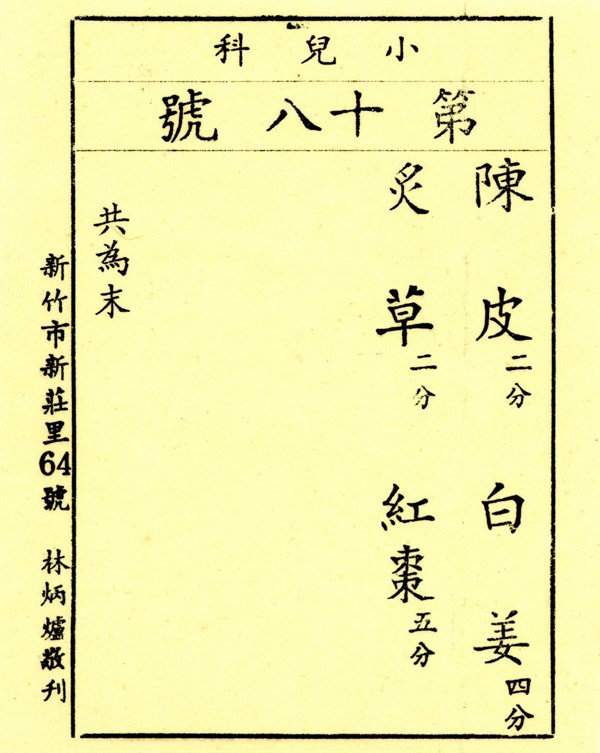 小兒科
第十八號
陳皮二分 白姜四分
炙草二分 紅棗五分
共為末
新竹市新莊里64號 林炳爐敬刊